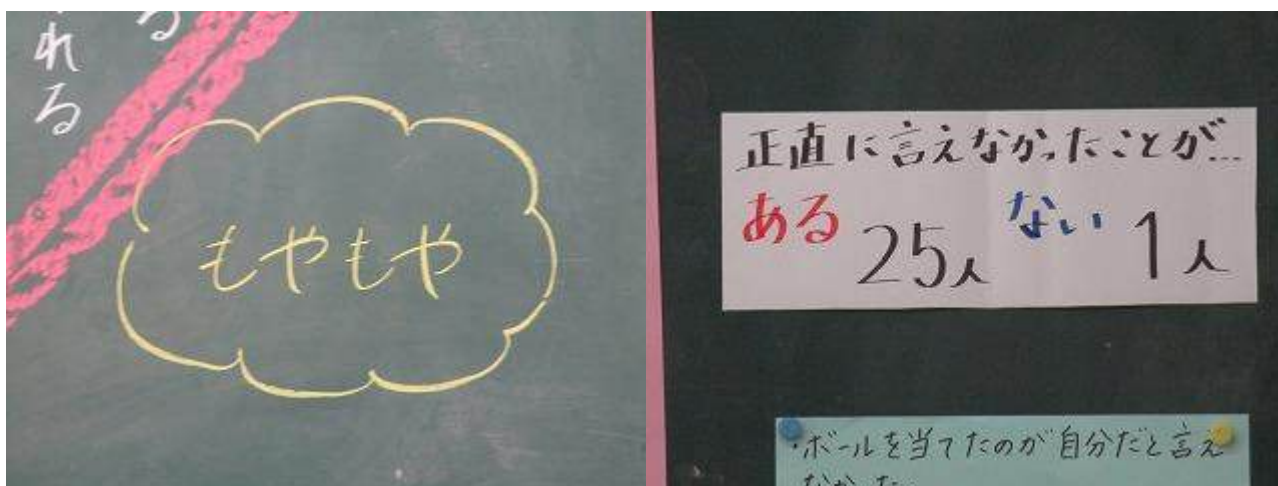 れる
る
もやもや
正直に言えなかったことが…
ある 25人 ない 1人
・ボールを当てたのが自分だと言え
なかった